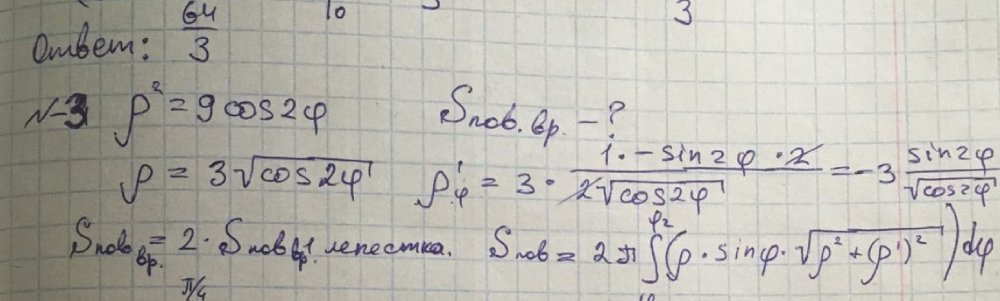 10 3
Ответ: 64/3
№3 ρ² = 9 cos2φ Sпов.вр. – ?
ρ = 3√cos2φ ρ'φ = 3 · (1 · -sin2φ · 2)/(2√cos2φ) = -3 sin2φ/√cos2φ
Sпов.вр. = 2 · Sпов.вр.1 лепестка. Sпов = 2π ∫φ₂ (ρ · sinφ · √(ρ² + (ρ')²)) dφ
π/4